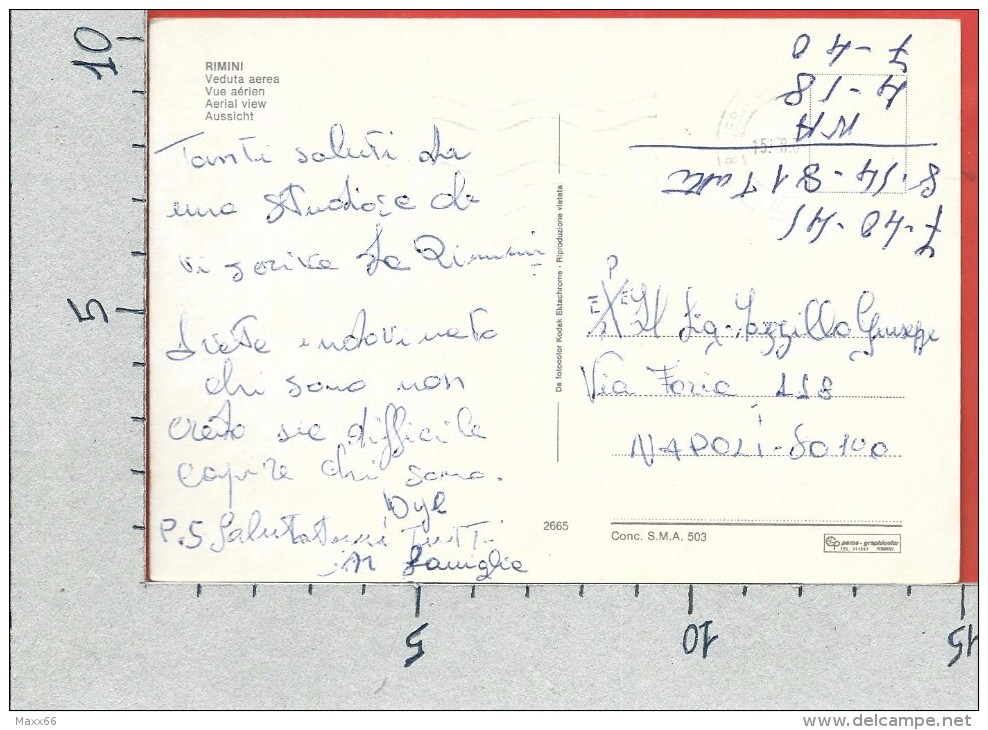 RIMINI
Veduta aerea
Vue aérien
Aerial view
Aussicht
Tanti saluti da
una studiosa che
vi scrive da Rimini
Avete indovinato
chi sono non
credo sia difficile
capire chi sono.
P.S Salutatemi Tutti
in famiglia
Da fotocolor Kodak Ektachrome - Riproduzione vietata
2665
7-40
4-58
NA
8.54-81 Tutti
7-40-45
Il Sig. Iozzillo Giuseppe
Via Foria 118
NAPOLI-80100
Conc. S.M.A. 503
pama-graphicolor
RIMINI
10
5
5
10
15
Maxx66
www.delcampe.net